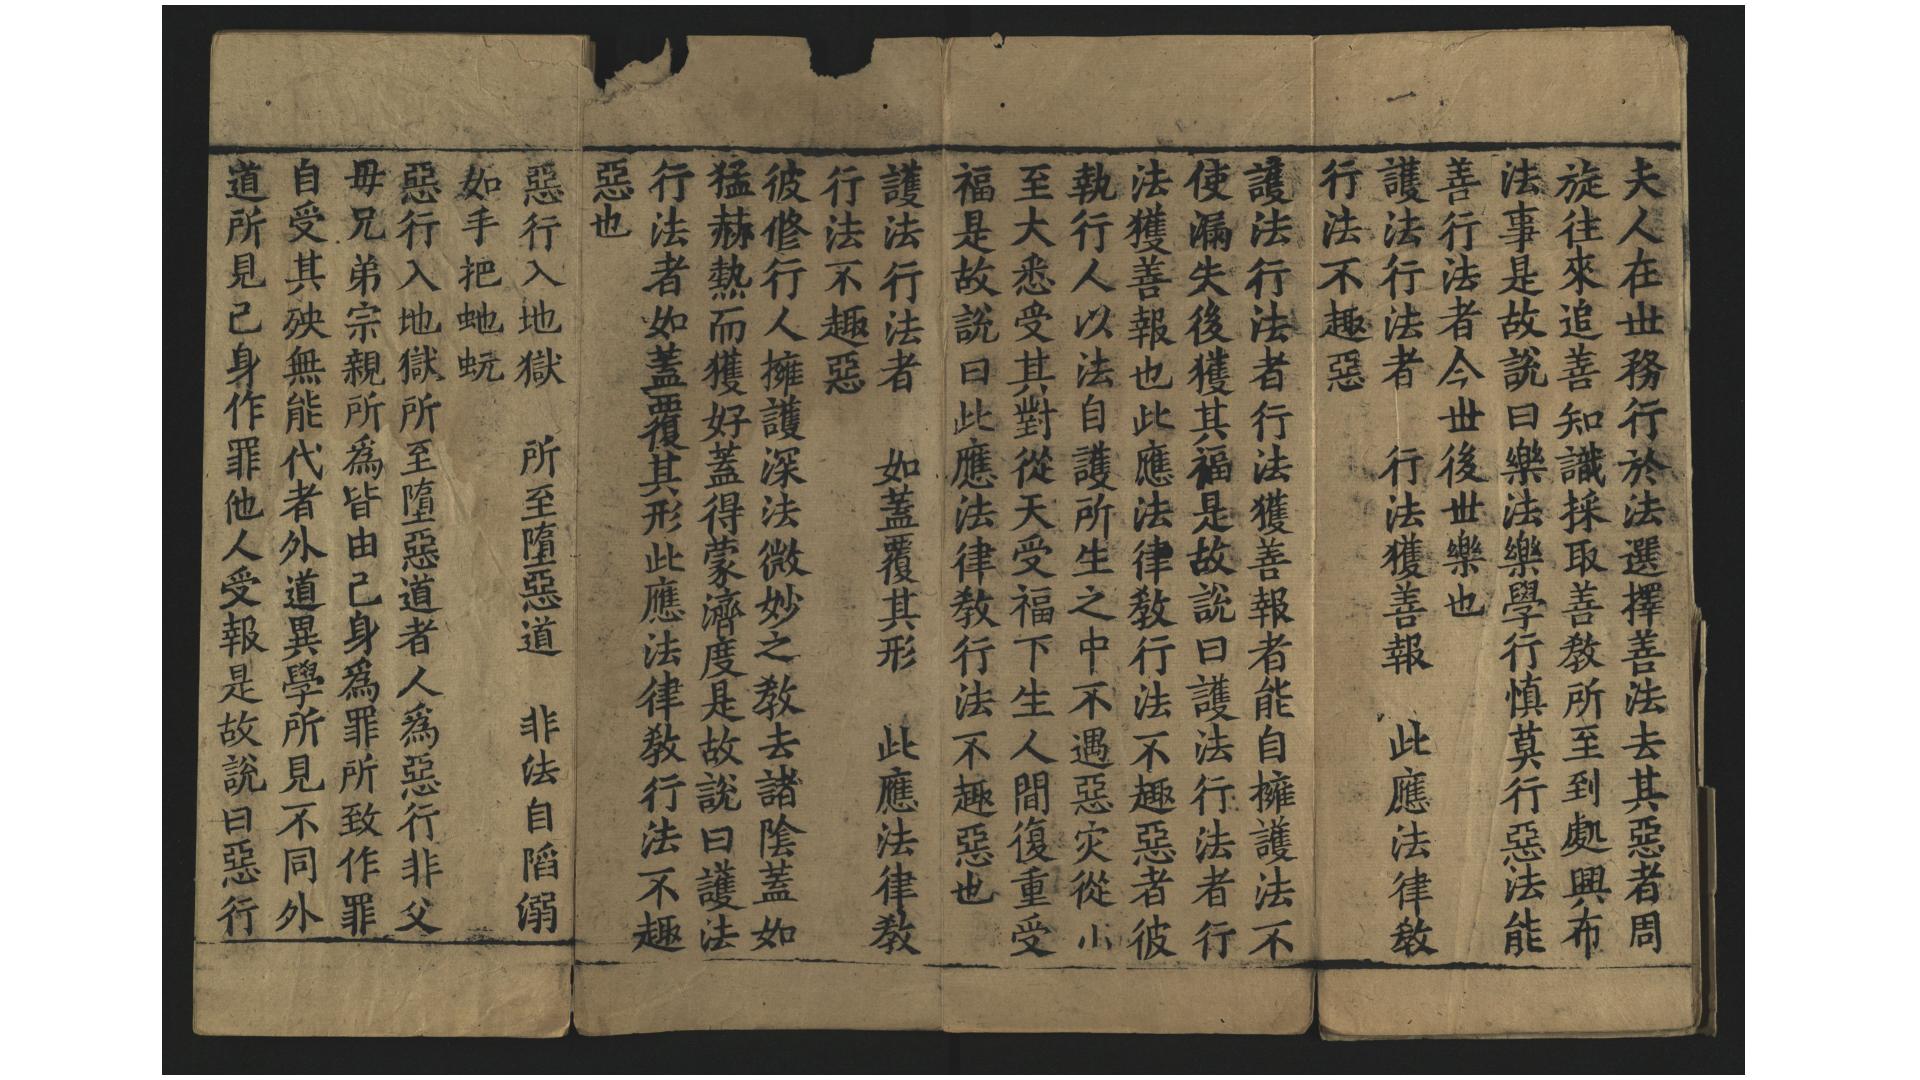 夫人在世務行於法選擇善法去其惡者周
旋往來追善知識採取善教所至到處興布
法事是故說曰樂法樂學行慎莫行惡法能
善行法者今世後世樂也
護法行法者　行法獲善報　此應法律教
行法不趣惡
護法行法者行法獲善報者能自擁護法不
使漏失後獲其福是故說曰護法行法者行
法獲善報也此應法律教行法不趣惡者彼
執行人以法自護所生之中不遇惡灾從小
至大悉受其對從天受福下生人間復重受
福是故說曰此應法律教行法不趣惡也
護法行法者　如蓋覆其形　此應法律教
行法不趣惡
彼修行人擁護深法微妙之教去諸陰蓋如
猛赫熱而獲好蓋得蒙濟度是故說曰護法
行法者如蓋覆其形此應法律教行法不趣
惡也
惡行入地獄　所至墮惡道　非法自陷溺
如手把虵蚖
惡行入地獄所至墮惡道者人爲惡行非父
毋兄弟宗親所爲皆由己身爲罪所致作罪
自受其殃無能代者外道異學所見不同外
道所見己身作罪他人受報是故說曰惡行